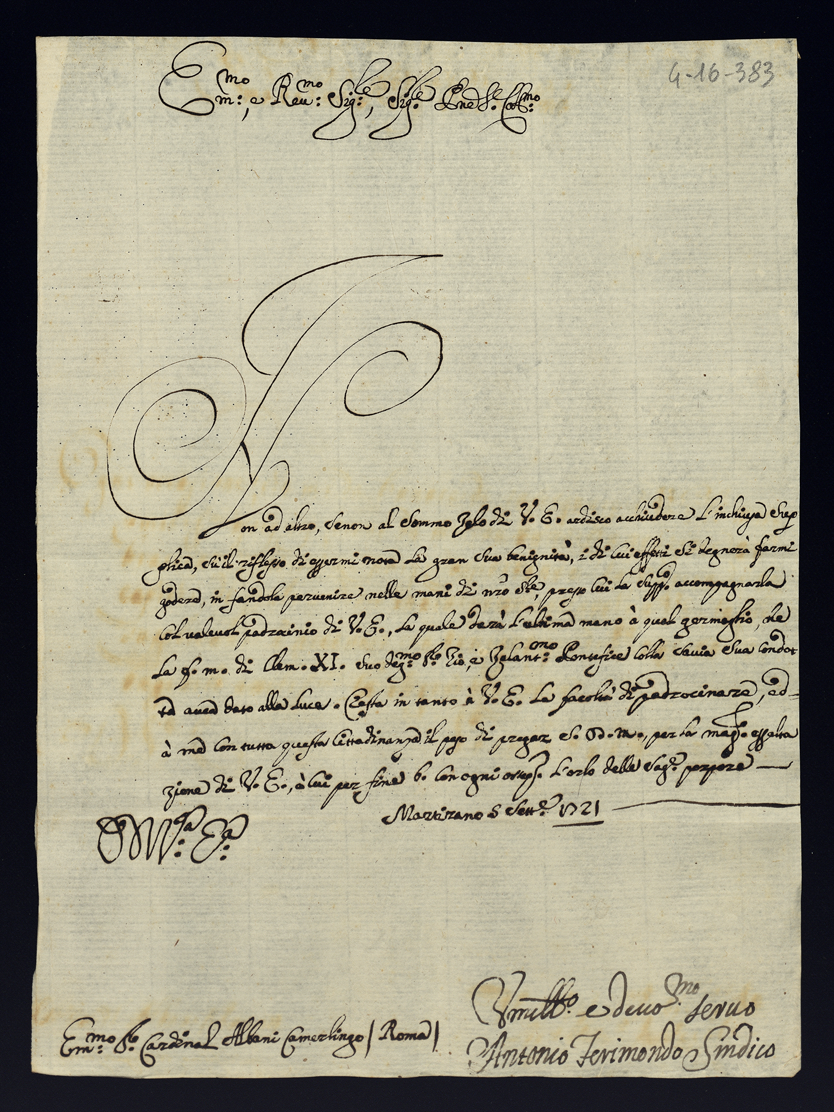 4-16-383
Em:mo, e Reu:mo Sig:re, Sig:re Pne S.r Col:mo
Non ad altro, senon al sommo Zelo di V. E. ardisco acchiudere l'inchiusa Sup
plica, sù il riflesso di essermi nota la gran sua benignità, i di cui effetti si degnerà farmi
godere, in farla pervenire nelle mani di nro Sre, presso cui la suppo accompagnarla
col valevol padrocinio di V. E., la quale darà l'ultima mano à quel germoglio, che
la s. m. di Clem. XI. suo deg:mo Sr Zio, e Zelant:mo Pontefice colla savia sua condot
ta avea dato alla luce. Resta in tanto à V. E. la facoltà di padrocinare, ed
à me con tutta questa Cittadinanza il peso di pregar S. D. M., per la magg:re essalta
zione di V. E., à cui per fine b. con ogni osseq:o l'orlo delle Sag:e porpore
Martirano 5 Sett:e 1721
D V:ra E:a
Vmill:o e deuo:mo seruo
Em:mo Sr Cardinal Albani Camerlingo / Roma /
Antonio Ierimondo Sindico